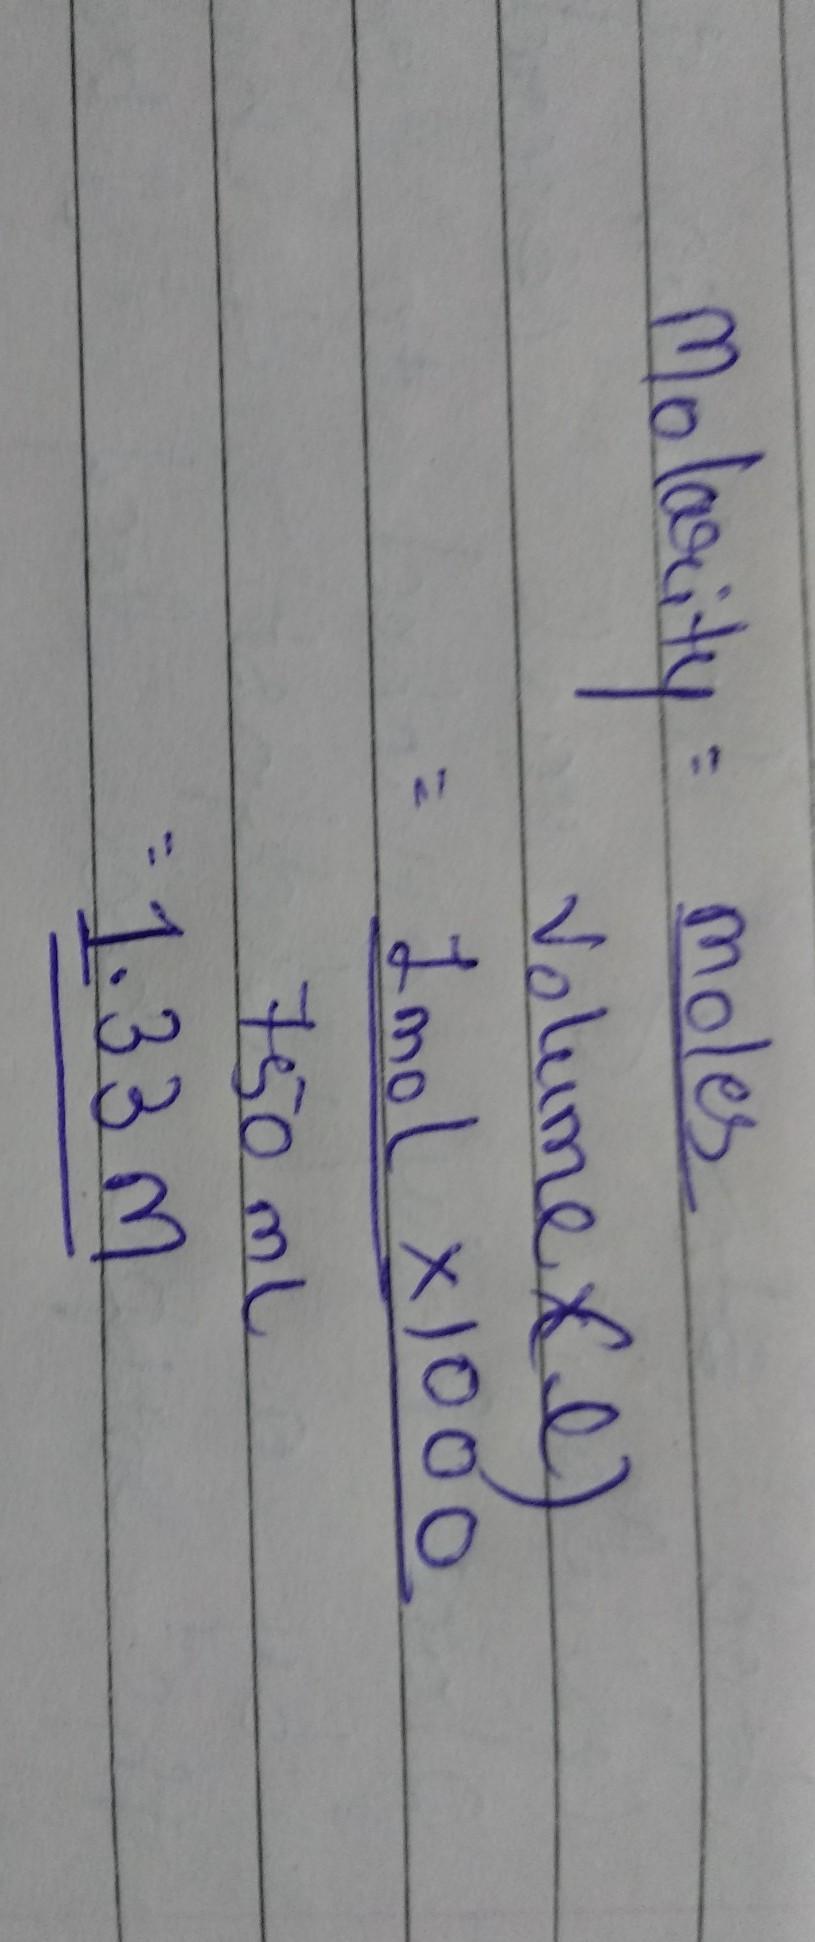 Molarity = moles
Volume (l)
= 1 mol × 1000
750 ml
= 1.33 M